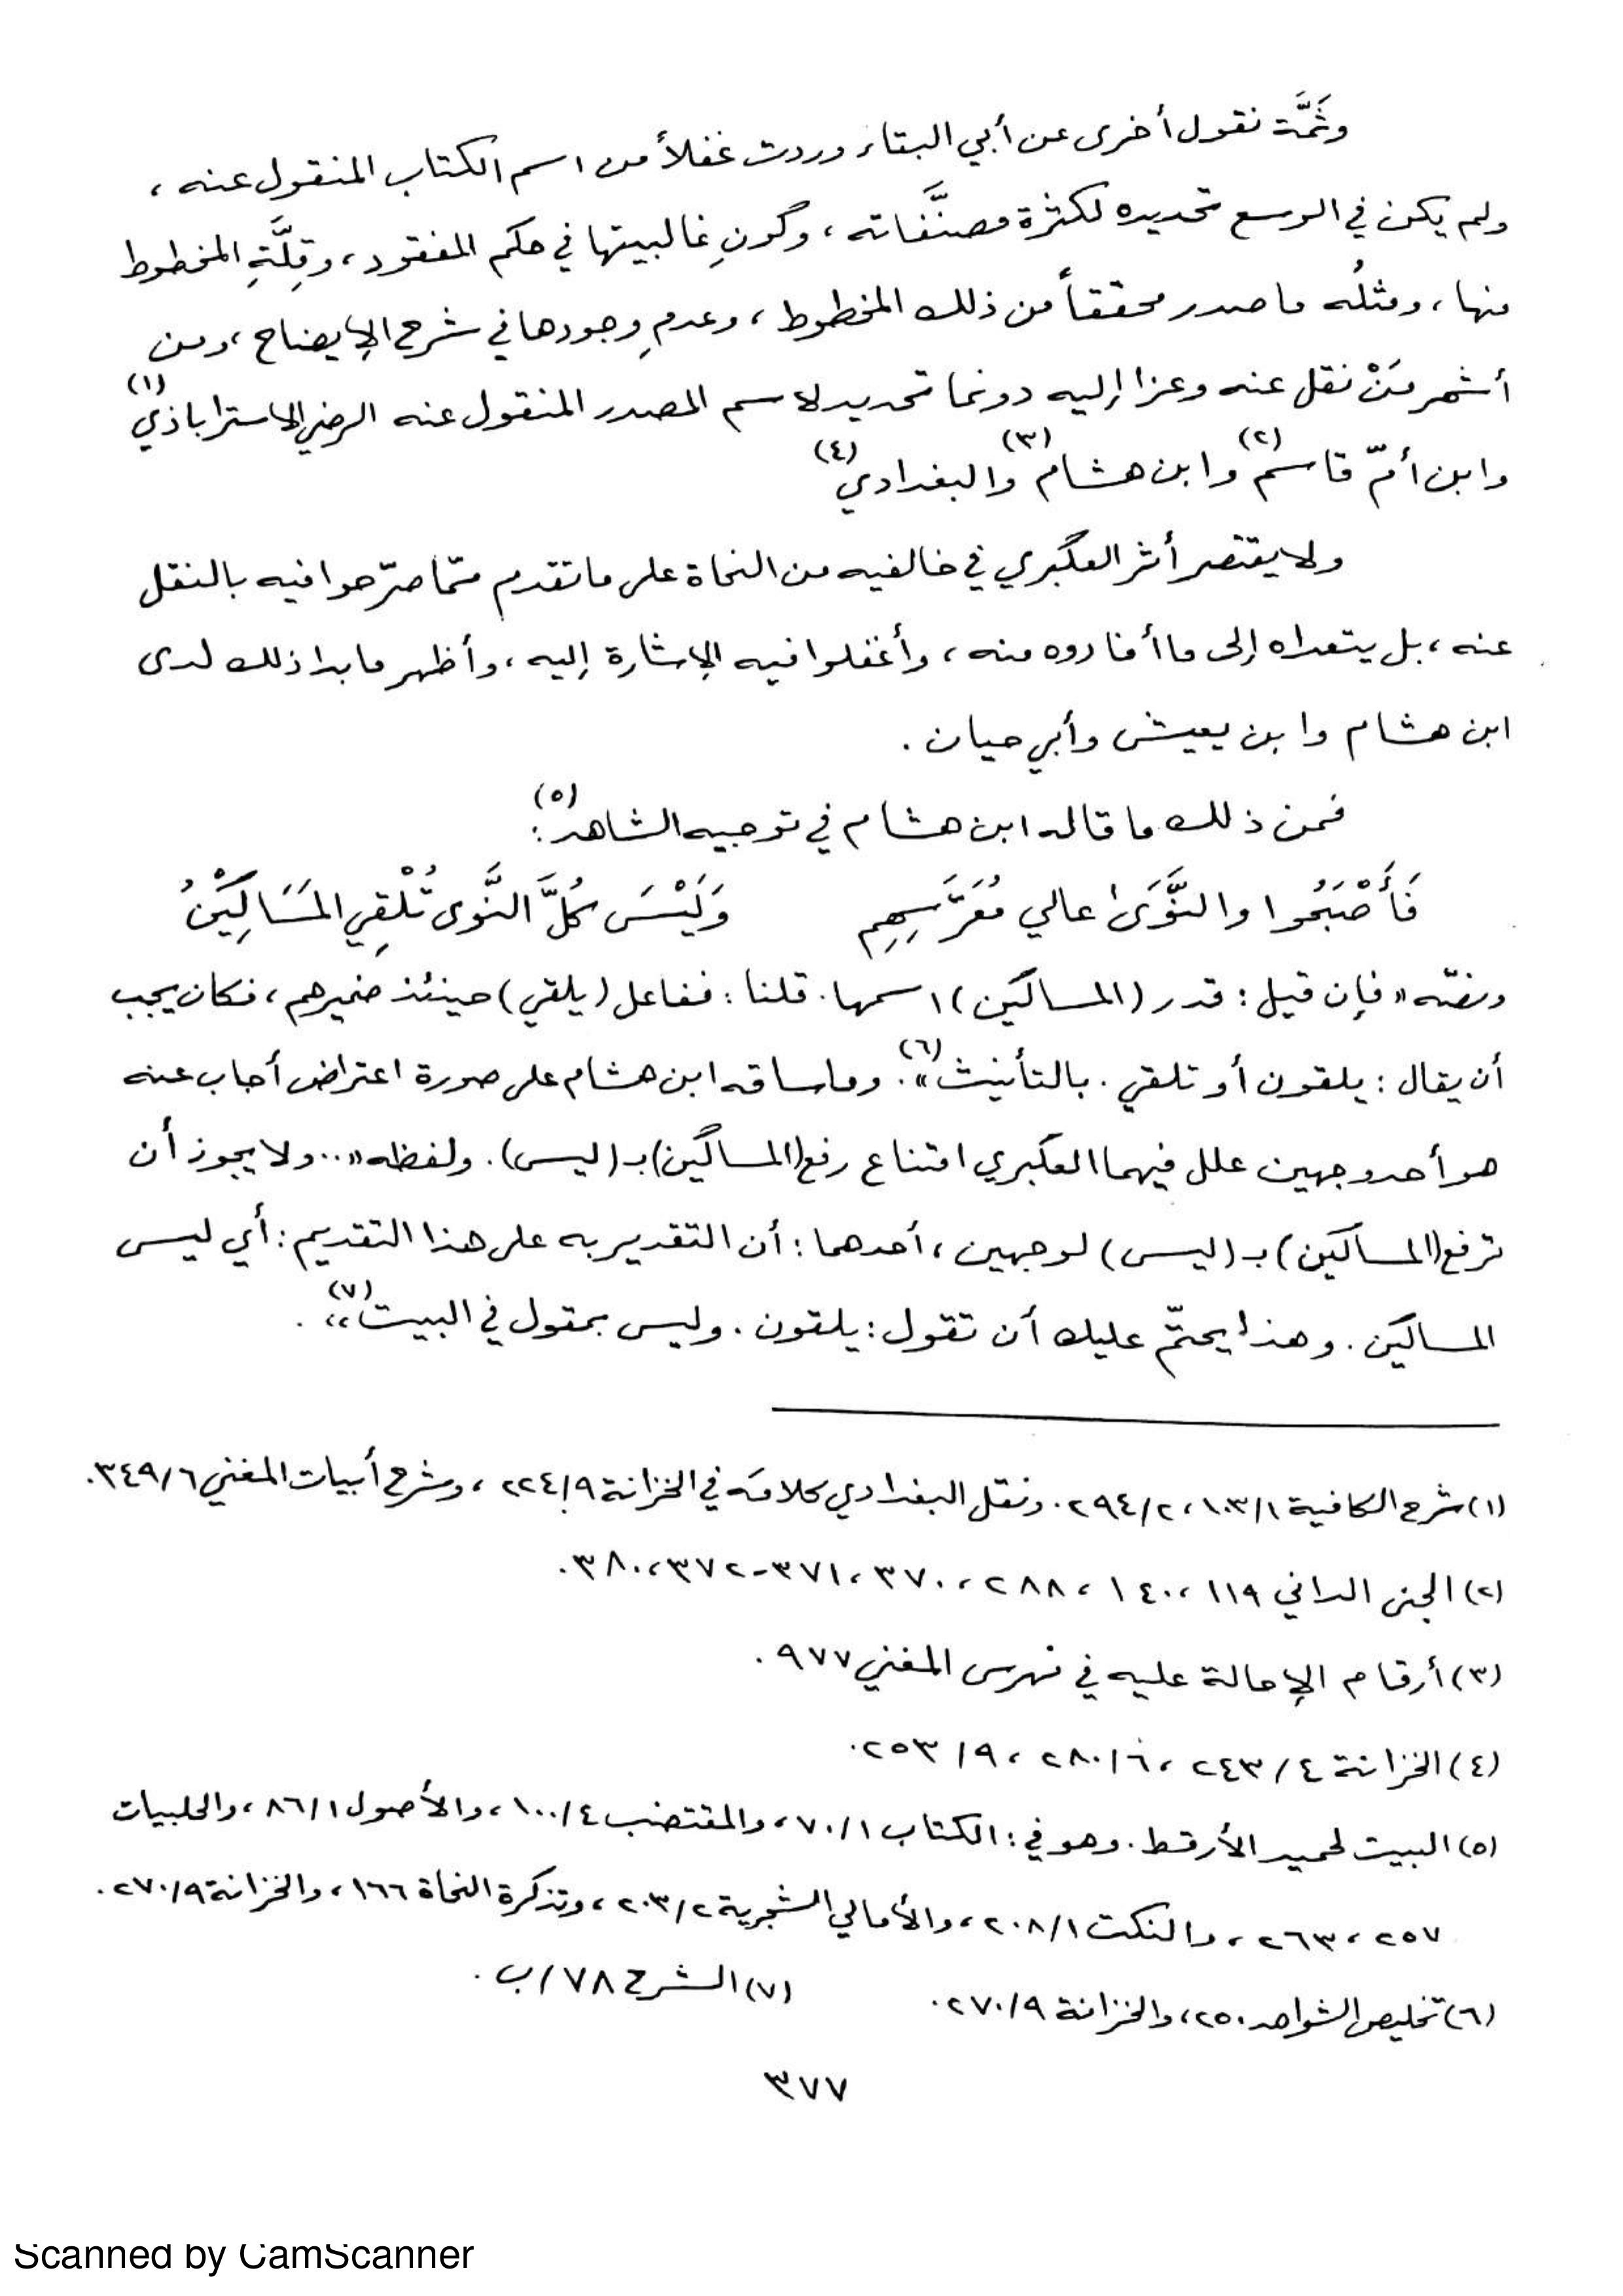 وثَمَّة نقول أخرى عن أبي البقاء وردت غفلاً من اسم الكتاب المنقول عنه ،
ولم يكن في الوسع تحديده لكثرة مصنَّفاته ، وكونِ غالبيتها في حكم المفقود ، وقِلَّةِ المخطوط
منها ، ومثلُه ما صدر محققاً من ذلك المخطوط ، وعدمِ وجودها في شرح الإيضاح ، ومن
أشهر مَنْ نقل عنه وعزا إليه دونما تحديد لاسم المصدر المنقول عنه الرضي الاستراباذي(١)
وابن أمّ قاسم(٢) وابن هشام(٣) والبغدادي(٤)
ولا يقتصر أثر العكبري في خالفيه من النحاة على ما تقدم ممّا صرّحوا فيه بالنقل
عنه ، بل يتعداه إلى ما أفادوه منه ، وأغفلوا فيه الإشارة إليه ، وأظهر ما بدا ذلك لدى
ابن هشام وابن يعيش وأبي حيان .
فمن ذلك ما قاله ابن هشام في توجيه الشاهد(٥):
فَأَصْبَحُوا والنَّوَى عالي مُعَرَّسِهِم وَلَيْسَ كُلَّ النَّوى تُلْقِي المَسَاكِيْنُ
ونصّه «فإن قيل : قدر (المساكين) اسمها . قلنا : ففاعل (يلقي) حينئذ ضميرهم ، فكان يجب
أن يقال : يلقون أو تلقي . بالتأنيث»(٦). وما ساقه ابن هشام على صورة اعتراض أجاب عنه
هو أحد وجهين علل فيهما العكبري امتناع رفع (المساكين) بـ (ليس). ولفظه «.. ولا يجوز أن
ترفع (المساكين) بـ (ليس) لوجهين ، أحدهما : أن التقدير به على هذا التقديم : أي ليس
المساكين . وهذا يحتّم عليك أن تقول : يلقون . وليس بمقول في البيت»(٧) .
(١) شرح الكافية ١/ ١٠٣، ٢/ ٢٩٤. ونقل البغدادي كلامَه في الخزانة ٩/ ٢٢٤ ، وشرح أبيات المغني ٦/ ٣٤٩.
(٢) الجنى الداني ١١٩ ، ١٤٠ ، ٢٨٨ ، ٣٧٠ ، ٣٧١-٣٧٢ ، ٣٨٠ .
(٣) أرقام الإحالة عليه في فهرس المغني ٩٧٧ .
(٤) الخزانة ٤/ ٢٤٣ ، ٦/ ٢٨٠ ، ٩/ ٢٥٣.
(٥) البيت لحميد الأرقط . وهو في : الكتاب ١/ ٧٠ ، والمقتضب ٤/ ١٠٠ ، والأصول ١/ ٨٦ ، والحلبيات
٢٥٧ ، ٢٦٣ ، والنكت ١/ ٢٠٨ ، والأمالي الشجرية ٢/ ٢٠٣ ، وتذكرة النحاة ١٦٦ ، والخزانة ٩/ ٢٧٠.
(٦) تخليص الشواهد ٢٥٠، والخزانة ٩/ ٢٧٠. (٧) الشرح ٧٨/ ب .
٣٧٧
Scanned by CamScanner